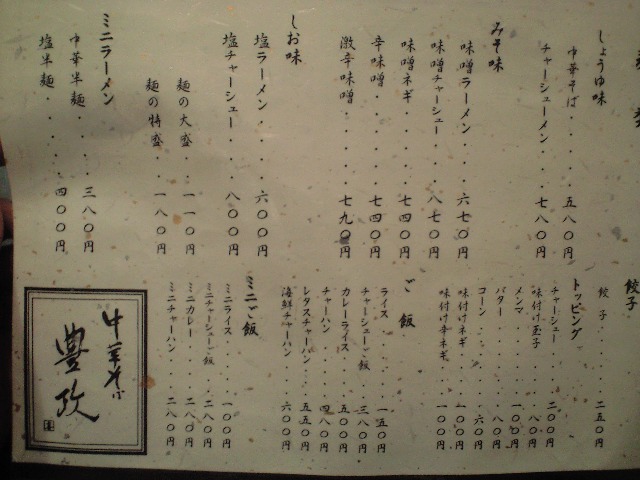 しょうゆ味
中華そば.....五八〇円
チャーシューメン...七八〇円
みそ味
味噌ラーメン....六七〇円
味噌チャーシュー...八七〇円
味噌ネギ.....七四〇円
辛味噌......七四〇円
激辛味噌.....七九〇円
しお味
塩ラーメン.....六〇〇円
塩チャーシュー...八〇〇円
麺の大盛..一一〇円
麺の特盛..一八〇円
ミニラーメン
中華半麺.....三八〇円
塩半麺.....四〇〇円
餃子
餃子......二五〇円
トッピング
チャーシュー...二〇〇円
味付け玉子....八〇円
メンマ.....一〇〇円
バター......八〇円
コーン......六〇円
味付けネギ....一〇〇円
味付け辛ネギ...一〇〇円
ご飯
ライス......一五〇円
チャーシューご飯..三八〇円
カレーライス...五〇〇円
チャーハン....四八〇円
レタスチャーハン..五五〇円
海鮮チャーハン...六〇〇円
ミニご飯
ミニライス....一〇〇円
ミニチャーシューご飯.二八〇円
ミニカレー....二八〇円
ミニチャーハン...二八〇円
中華そば